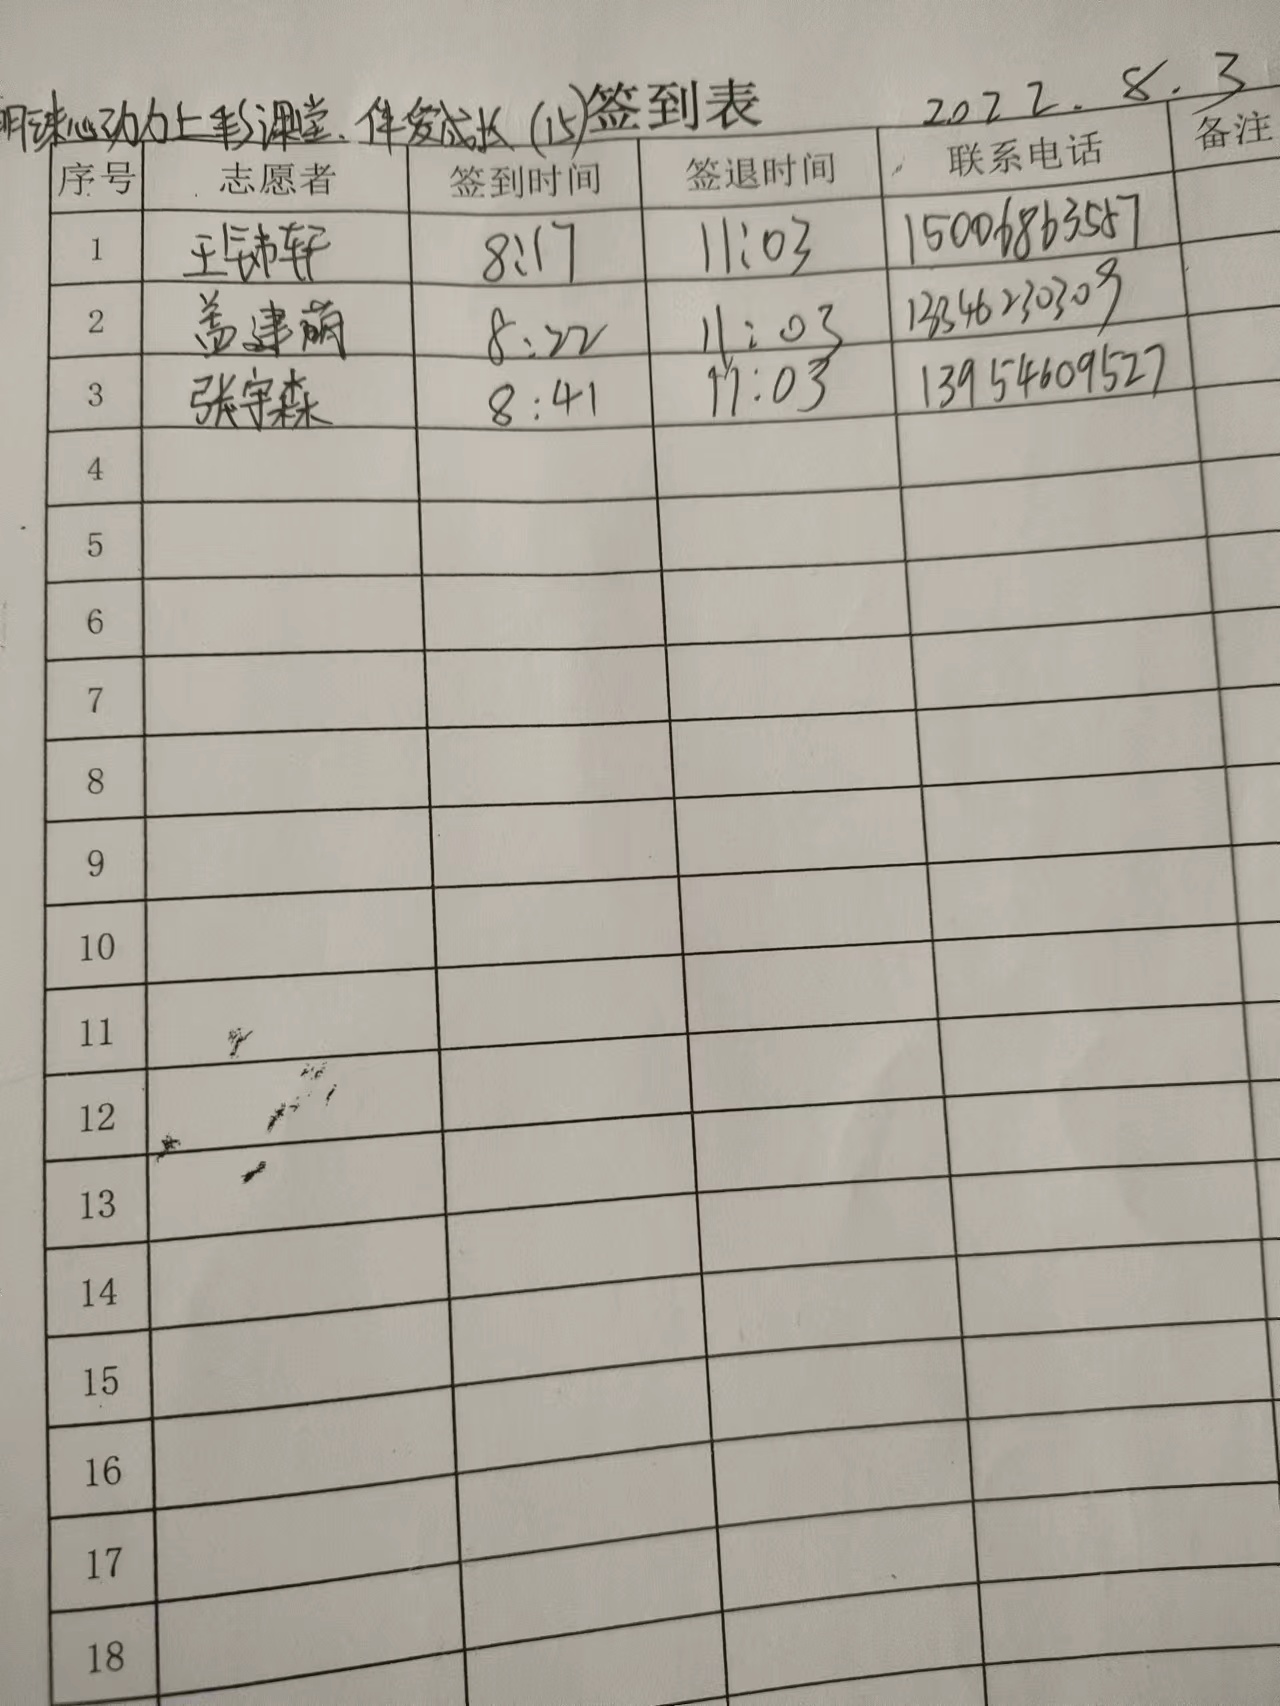 明珠心动力七彩课堂.伴爱成长(15)签到表 2022.8.3
序号 志愿者 签到时间 签退时间 联系电话 备注
1 王 轩 8:17 11:03 15006863587
2 盖建萌 8:22 11:03 13346230309
3 张宇森 8:41 11:03 13954609527
4
5
6
7
8
9
10
11
12
13
14
15
16
17
18